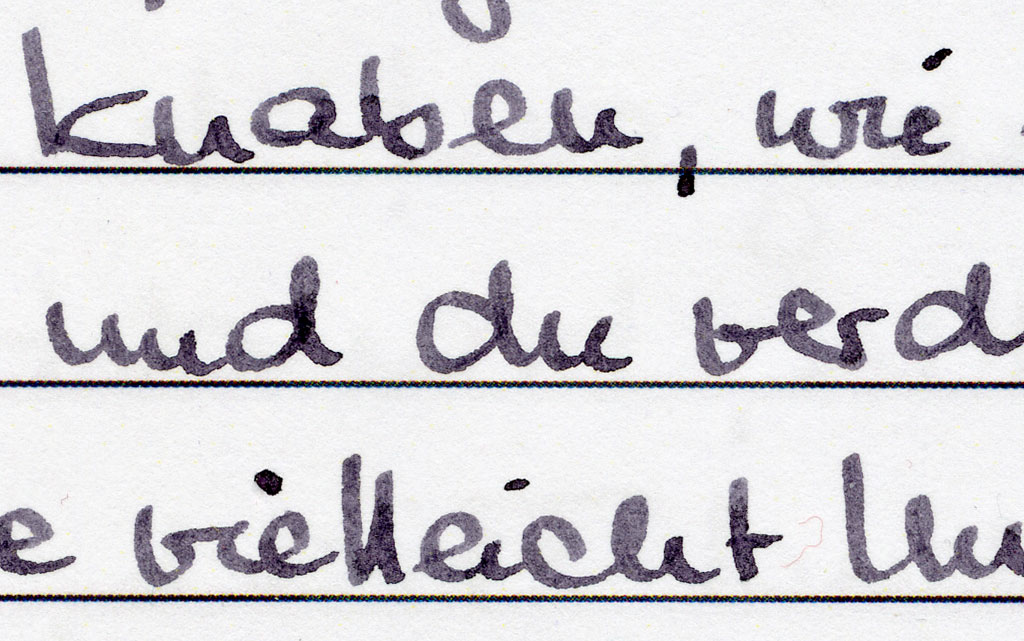 Knaben, wie
und du verd
e vielleicht